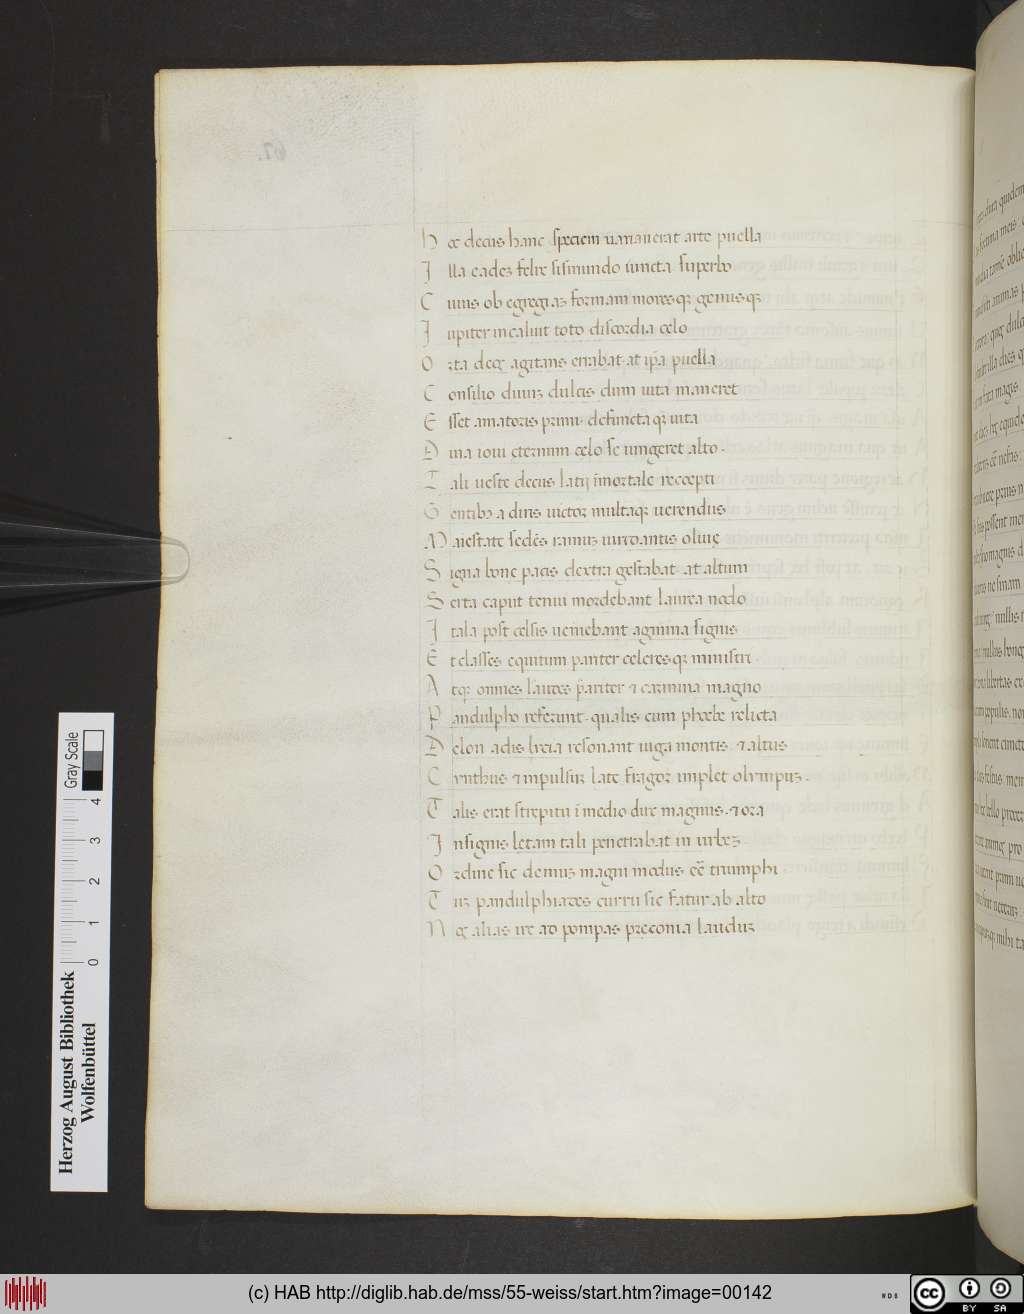 H oc decus hanc speciem uariauerat arte puella
I lla eadez felix sismundo iuncta superbo
C uius ob egregiaz formam moresqꝫ genusqꝫ
I upiter incaluit toto discordia celo
O rta deqꝫ agitans errabat at ip̄a puella
C onsilio diuuz dulcis dum uita maneret
E sset amatoris primi. defunctaqꝫ uita
D iua ioui eternum celo se iungeret alto.
T ali ueste decus latij īmortale recepti
G entibꝫ a diris uictor multaqꝫ uerendus
M aiestate sedēs ramuz uirdantis oliuę
S igna bone pacis dextra gestabat at altum
S erta caput tenui mordebant laurea nodo
I tala post celsis ueniebant agmina signis
E t classes equitum pariter celeresqꝫ ministri.
A tqꝫ omnes lauros pariter ⁊ carmina magno
P andulpho referunt. qualis cum phoebe relicta
D elon adis lreta resonant iuga montis. ⁊ altus
C inthus ⁊ impulsuz late fragor implet olimpuz.
T alis erat strepitu ī medio dux magnus. ⁊ ora
I nsignis lętam tali penetrabat in urbez
O rdine sic demuz magni modus eēt triumphi
T uz pandulphiades curru sic fatur ab alto
N ec alias ire ad pompas pręconia lauduz
67.
Herzog August Bibliothek
Wolfenbüttel
Gray Scale
0 1 2 3 4
(c) HAB http://diglib.hab.de/mss/55-weiss/start.htm?image=00142
cc BY SA